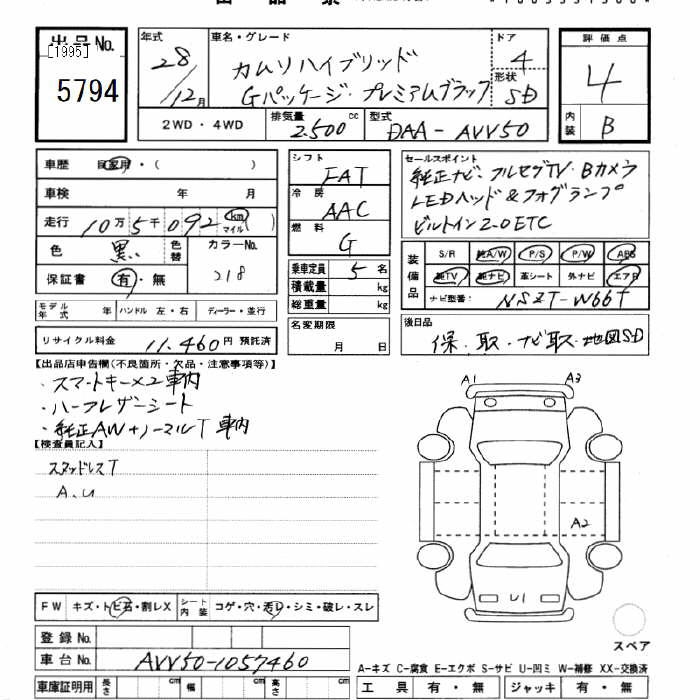 出品No.
[1995]
5794
年式
28
12月
車名・グレード
カムリハイブリッド
Gパッケージ・プレミアムブラック
ドア
4
形状
SD
2WD・4WD
排気量
2.500
cc
型式
DAA-AVV50
評価点
4
内装
B
車歴 自家用・( )
車検 年 月
走行 10万5千092 km マイル( )
色 黒 色替 カラーNo. 218
保証書 有・無
モデル年式 年 ハンドル 左・右 ディーラー・並行
リサイクル料金 11,460円 預託済
シフト
FAT
冷房
AAC
燃料
G
乗車定員 5名
積載量 kg
総重量 kg
名変期限
月 日
セールスポイント
純正ナビ・フルセグTV・Bカメラ
LEDヘッド&フォグランプ
ビルトイン2.0ETC
装備品
S/R 純A/W P/S P/W ABS
純TV 純ナビ 革シート 外ナビ エアB
ナビ型番: NSZT-W66T
後日品
保・取・ナビ取・地図SD
【出品店申告欄(不良箇所・欠品・注意事項等)】
・スマートキー×2車内
・ハーフレザーシート
・純正AW+ノーマルT車内
【検査員記入】
スタッドレスT
A、U
A1
A3
A2
U1
スペア
FW キズ・トビ石・割レX シート内装 コゲ・穴・汚レ・シミ・破レ・スレ
登録No.
車台No. AVV50-1057460
車庫証明用 長さ cm 幅 cm 高さ cm
A-キズ C-腐食 E-エクボ S-サビ U-凹ミ W-補修 XX-交換済
工具 有・無 ジャッキ 有・無